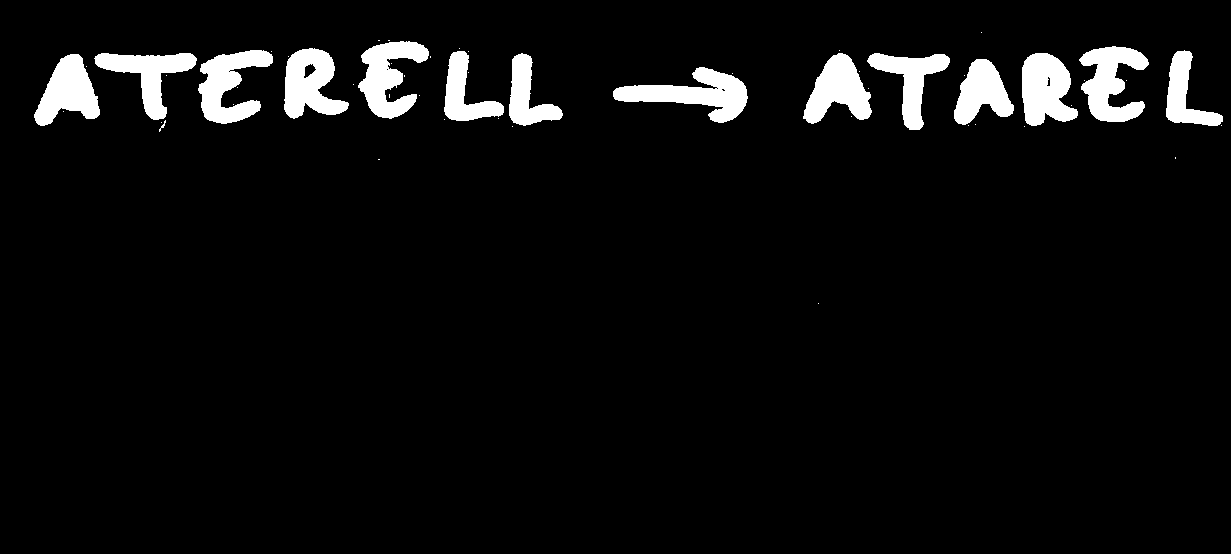 ATERELL → ATAREL